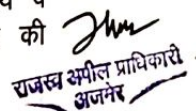 की
राजस्व अपील प्राधिकारी
अजमेर